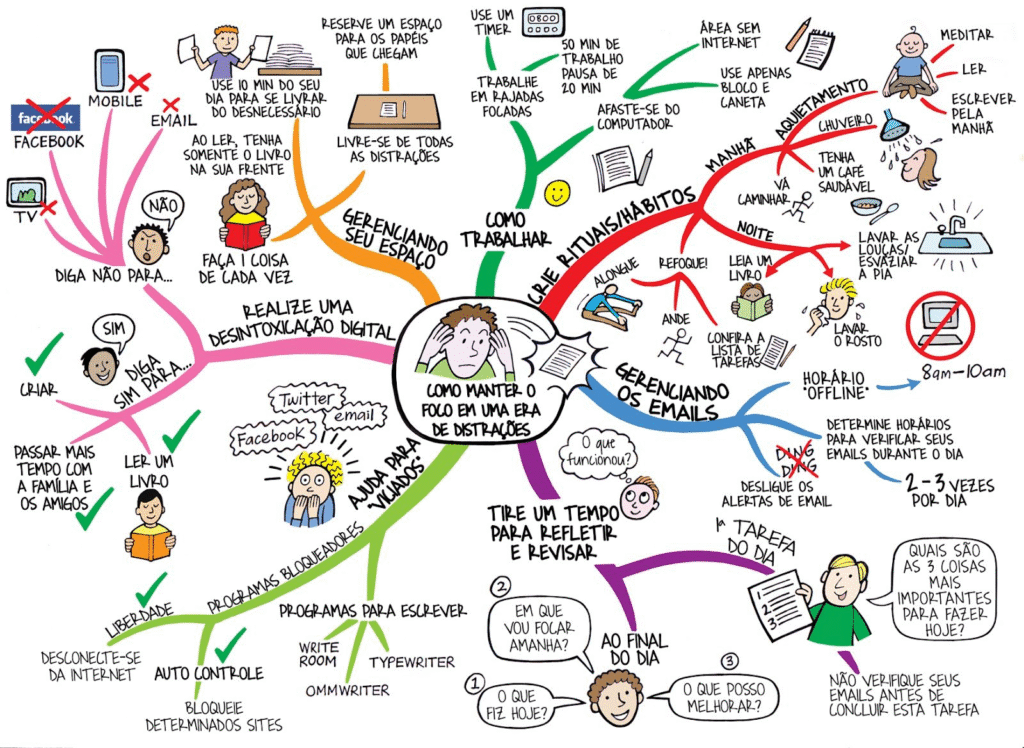 COMO MANTER O
FOCO EM UMA ERA
DE DISTRAÇÕES
COMO
TRABALHAR
TRABALHE
EM RAJADAS
FOCADAS
USE UM
TIMER
0800
50 MIN DE
TRABALHO
PAUSA DE
20 MIN
AFASTE-SE DO
COMPUTADOR
ÁREA SEM
INTERNET
USE APENAS
BLOCO E
CANETA
CRIE RITUAIS/HÁBITOS
MANHÃ
AQUIETAMENTO
MEDITAR
LER
ESCREVER
PELA
MANHÃ
CHUVEIRO
TENHA
UM CAFÉ
SAUDÁVEL
VÁ
CAMINHAR
NOITE
LEIA UM
LIVRO
LAVAR AS
LOUÇAS/
ESVAZIAR
A PIA
LAVAR
O ROSTO
REFOQUE!
ALONGUE
ANDE
CONFIRA A
LISTA DE
TAREFAS
GERENCIANDO
OS EMAILS
HORÁRIO
"OFFLINE"
8am-10am
DETERMINE HORÁRIOS
PARA VERIFICAR SEUS
EMAILS DURANTE O DIA
2-3 VEZES
POR DIA
DING
DING
DESLIGUE OS
ALERTAS DE EMAIL
TIRE UM TEMPO
PARA REFLETIR
E REVISAR
O que
funcionou?
1ª TAREFA
DO DIA
1
2
3
QUAIS SÃO
AS 3 COISAS
MAIS
IMPORTANTES
PARA FAZER
HOJE?
NÃO VERIFIQUE SEUS
EMAILS ANTES DE
CONCLUIR ESTA TAREFA
AO FINAL
DO DIA
1
O QUE
FIZ HOJE?
2
EM QUE
VOU FOCAR
AMANHA?
3
O QUE POSSO
MELHORAR?
AJUDA PARA
VICIADOS
Twitter
email
Facebook
PROGRAMAS BLOQUEADORES
LIBERDADE
DESCONECTE-SE
DA INTERNET
AUTO CONTROLE
BLOQUEIE
DETERMINADOS SITES
PROGRAMAS PARA ESCREVER
WRITE
ROOM
OMMWRITER
TYPEWRITER
REALIZE UMA
DESINTOXICAÇÃO DIGITAL
DIGA NÃO PARA...
NÃO
TV
facebook
FACEBOOK
MOBILE
EMAIL
DIGA
SIM PARA...
SIM
CRIAR
PASSAR MAIS
TEMPO COM
A FAMÍLIA E
OS AMIGOS
LER UM
LIVRO
GERENCIANDO
SEU ESPAÇO
AO LER, TENHA
SOMENTE O LIVRO
NA SUA FRENTE
FAÇA 1 COISA
DE CADA VEZ
USE 10 MIN DO SEU
DIA PARA SE LIVRAR
DO DESNECESSÁRIO
RESERVE UM ESPAÇO
PARA OS PAPÉIS
QUE CHEGAM
LIVRE-SE DE TODAS
AS DISTRAÇÕES